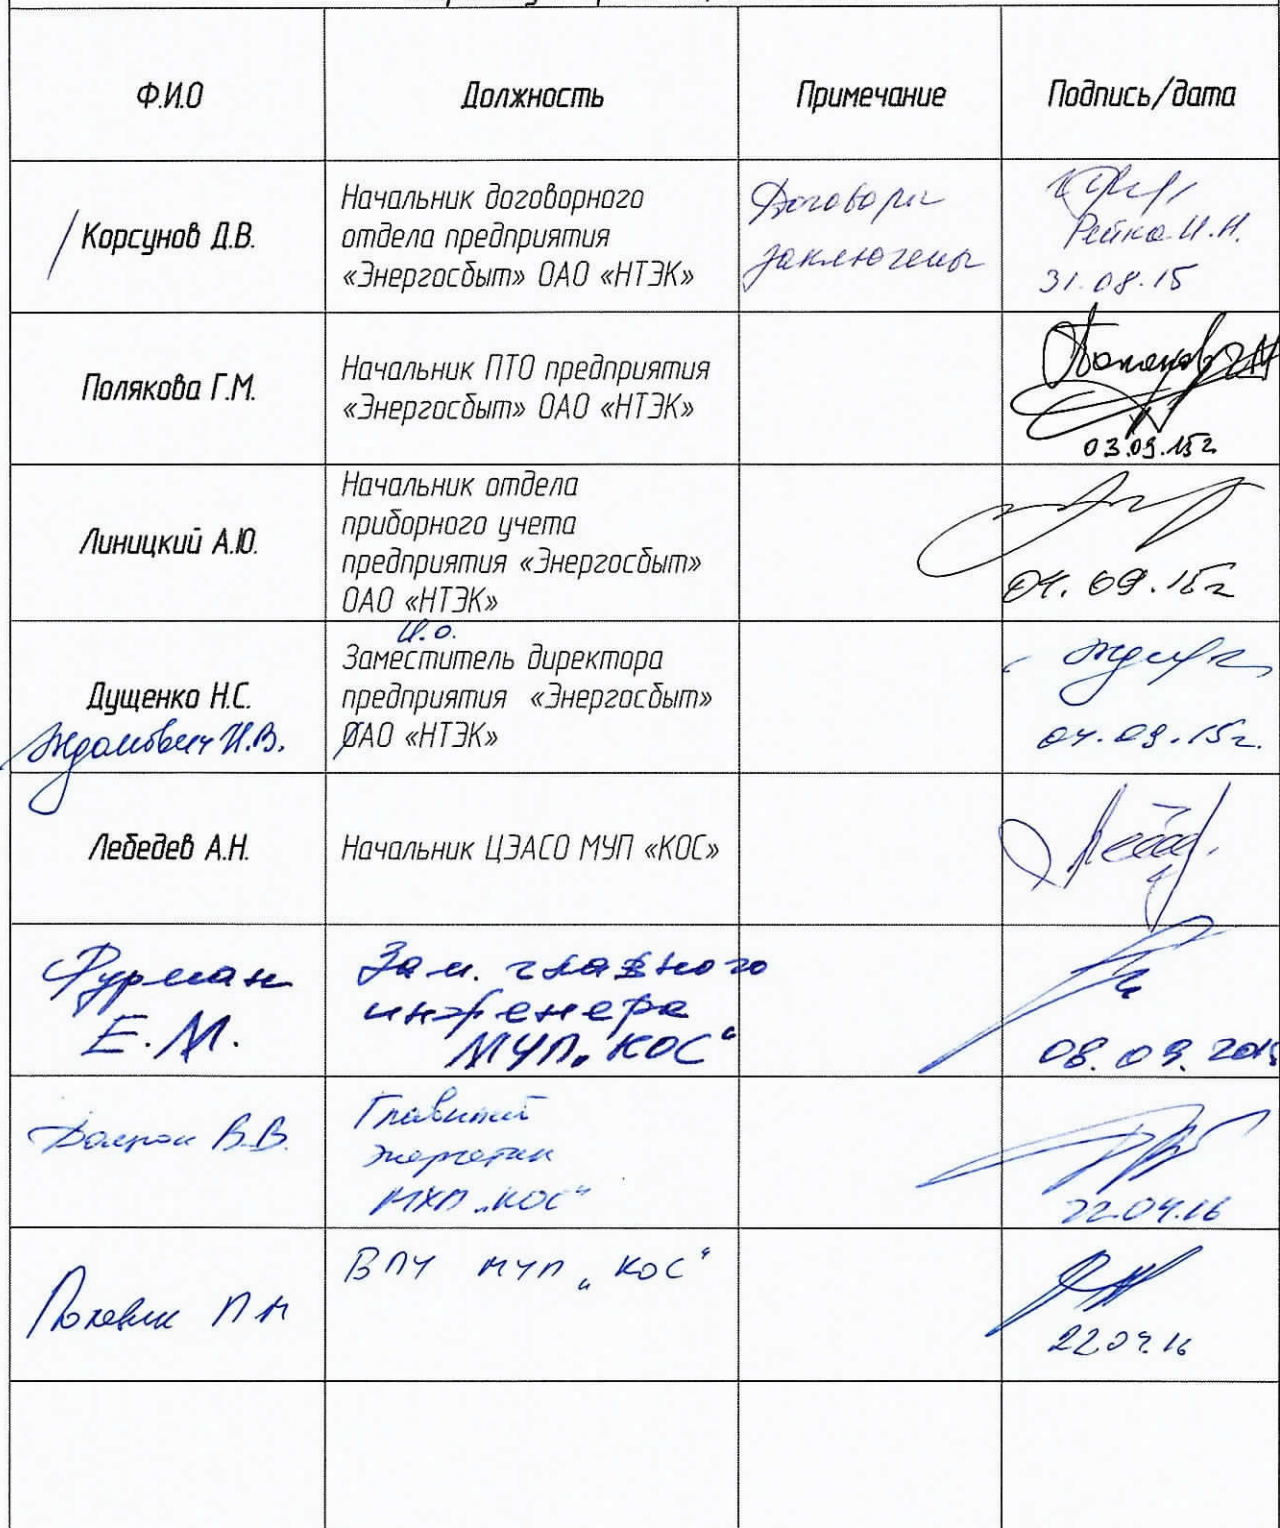 Ф.И.О
Должность
Примечание
Подпись/дата
Корсунов Д.В.
Начальник договорного
отдела предприятия
«Энергосбыт» ОАО «НТЭК»
Договоры
заключены
Рейко И.Н.
31.08.15
Полякова Г.М.
Начальник ПТО предприятия
«Энергосбыт» ОАО «НТЭК»
03.09.15г
Линицкий А.Ю.
Начальник отдела
приборного учета
предприятия «Энергосбыт»
ОАО «НТЭК»
04.09.15г
Дущенко Н.С.
Ждамович И.В.
И.о.
Заместитель директора
предприятия «Энергосбыт»
ОАО «НТЭК»
04.09.15г.
Лебедев А.Н.
Начальник ЦЭАСО МУП «КОС»
Фурман
Е.М.
Зам. главного
инженера
МУП „КОС“
08.09.2015
В.В.
Главный
энергетик
МУП „КОС“
22.04.16
П М
ВПУ МУП „КОС“
22.04.16